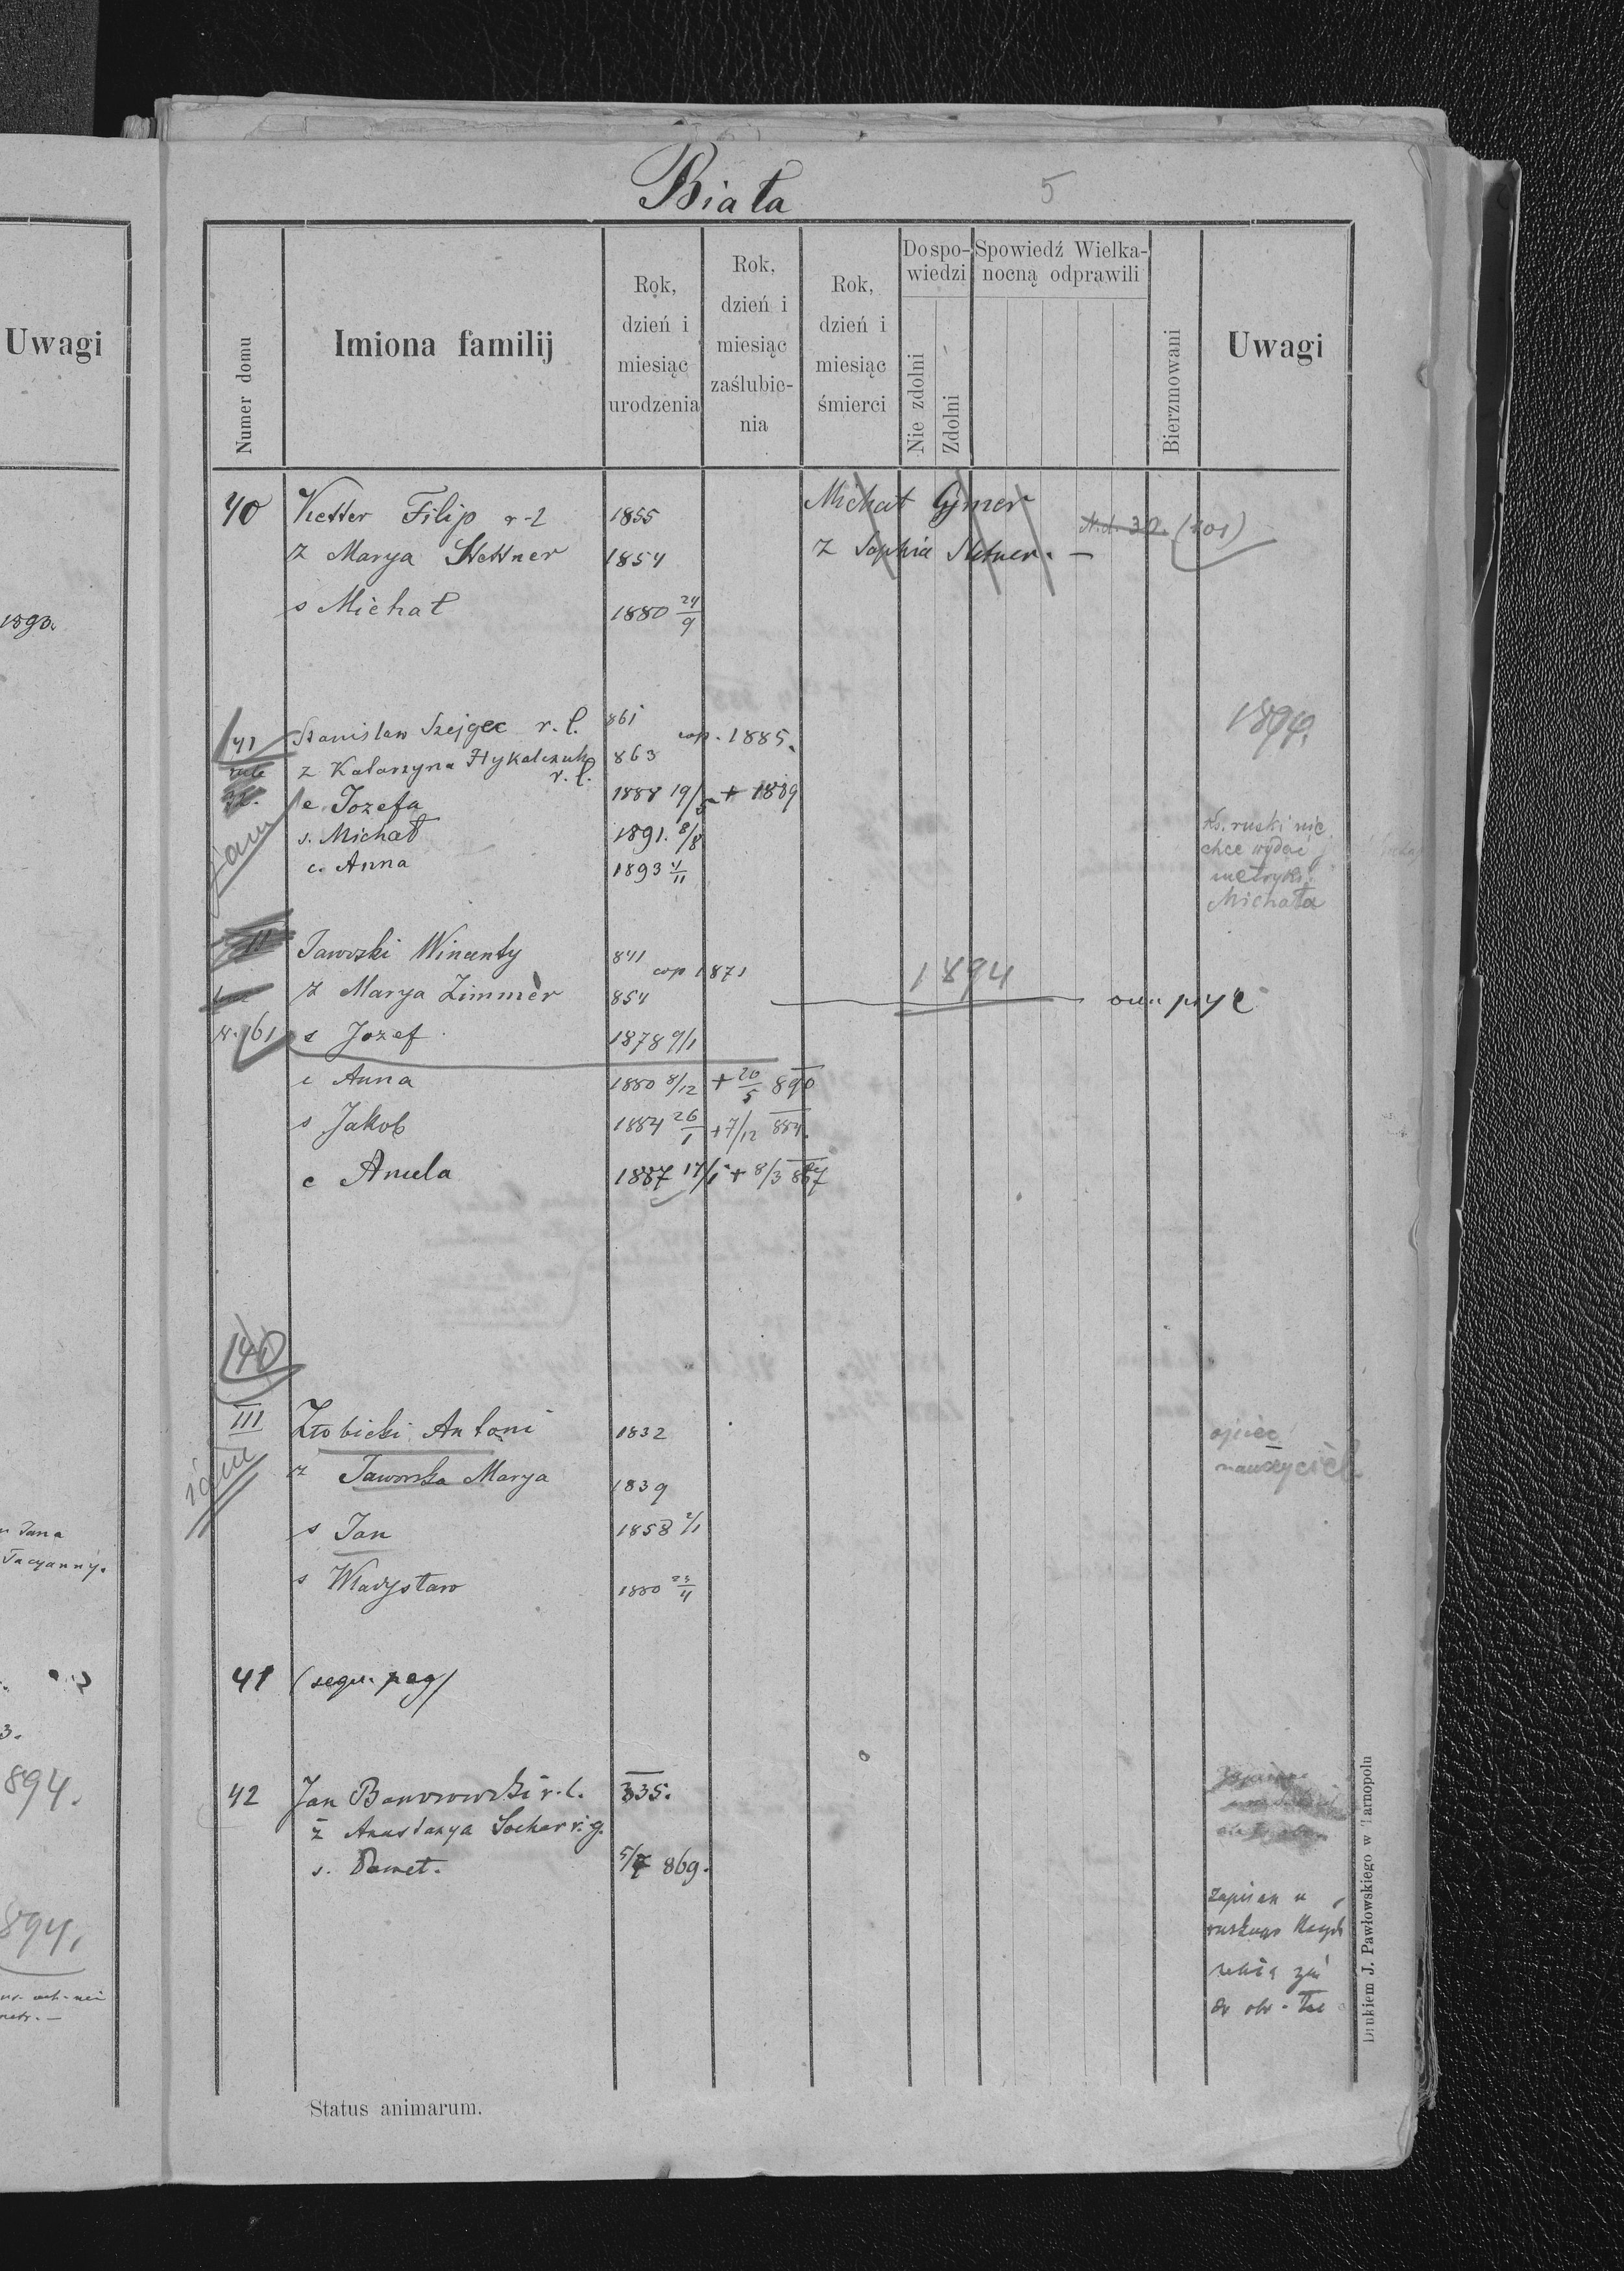 Biała
5
Uwagi
1893.
Numer domu
Imiona familij
Rok, dzień i miesiąc urodzenia
Rok, dzień i miesiąc zaślubie-nia
Rok, dzień i miesiąc śmierci
Do spo-wiedzi
Nie zdolni
Zdolni
Spowiedź Wielka-nocną odprawili
Bierzmowani
Uwagi
40 Ketter Filip r-l 1855 Michał
ż Marya Stettner 1854 ż Sophia
N.d. 32. (101)
s Michał 1880 24/9
41 Stanisław Szejgec r. l. 861 cop. 1885.
ż Katarzyna Hykalczuk r. l. 863
c. Jozefa 1888 19/5 + 1889
s. Michał 1891. 8/8
c. Anna 1893 4/11
Ks. ruski nie
chce wydać
metryki
Michała
II Jaworski Wincenty 841 cop 1871
ż Marya Zimmer 854
1894
N. 161 s Jozef 1878 9/1
c Anna 1880 8/12 + 20/5 890
s Jakob 1884 26/1 + 7/12 884.
c Aniela 1887 17/1 + 8/3 887
140
III Złobicki Antoni 1832
ż Jaworska Marya 1839
ojciec
nauczyciel
s Jan 1858 2/1
s Władysław 1880 23/11
n Jana
Tacyanny.
41 (sequ. pag)
3.
894.
42 Jan Baworowski r. l. 835.
ż Anastazya Sochar r. g.
s. Paweł. 5/7 869.
894.
zapisan u
Status animarum.
Drukiem J. Pawłowskiego w Tarnopolu